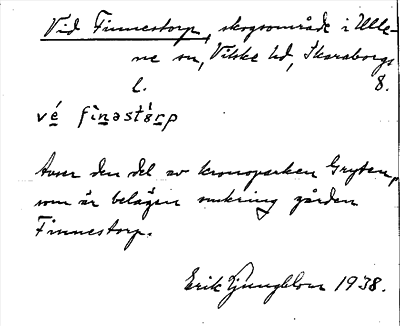 Vid Finnestorp, skogsområde i Ulle-
ne sn, Vilske hd, Skaraborgs
l. 8.
vé finastòrp
Avser den del av kronoparken Gryten,
som är belägen omkring gården
Finnestorp.
Erik Ljungblom 1938.